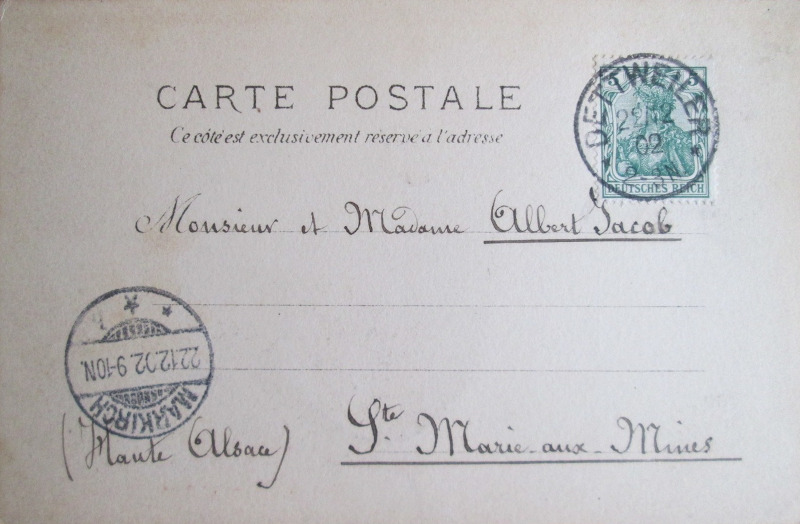 CARTE POSTALE
Ce côté est exclusivement réservé a l'adresse
DETTWEILER
02
2-3N
5 5
DEUTSCHES REICH
Monsieur et Madame Albert Jacob
22.12.02.9-10N.
MARKIRCH
(Haute Alsace)
Ste Marie-aux-Mines